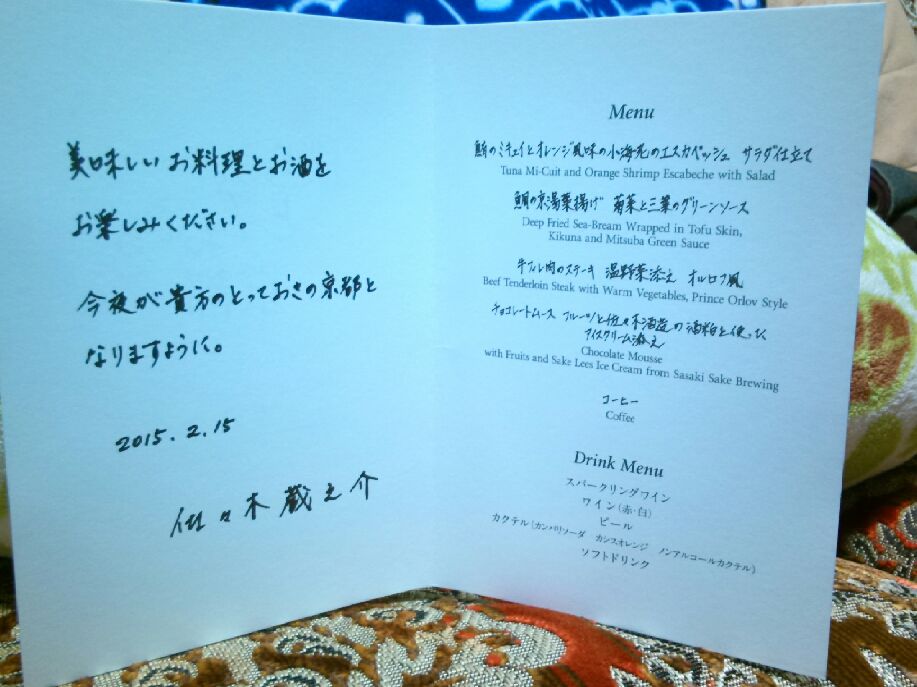 美味しいお料理とお酒を
お楽しみください。
今夜が貴方のとっておきの京都と
なりますように。
2015.2.15
佐々木蔵之介
Menu
鮪のミキュイとオレンジ風味の小海老のエスカベッシュ サラダ仕立て
Tuna Mi-Cuit and Orange Shrimp Escabeche with Salad
鯛の京湯葉揚げ 菊菜と三葉のグリーンソース
Deep Fried Sea-Bream Wrapped in Tofu Skin,
Kikuna and Mitsuba Green Sauce
牛フィレ肉のステーキ 温野菜添え オルロフ風
Beef Tenderloin Steak with Warm Vegetables, Prince Orlov Style
チョコレートムース フルーツと佐々木酒造の酒粕を使った
アイスクリーム添え
Chocolate Mousse
with Fruits and Sake Lees Ice Cream from Sasaki Sake Brewing
コーヒー
Coffee
Drink Menu
スパークリングワイン
ワイン(赤・白)
ビール
カクテル(カンパリソーダ カシスオレンジ ノンアルコールカクテル)
ソフトドリンク